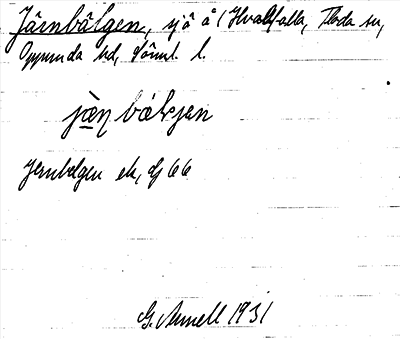 Järnbälgen, sjö å Hvalfalla, Floda sn,
Oppunda hd, Söml. l.
jæn bælγen
Jernbelgen ek, dj 66
G. Annell 1931